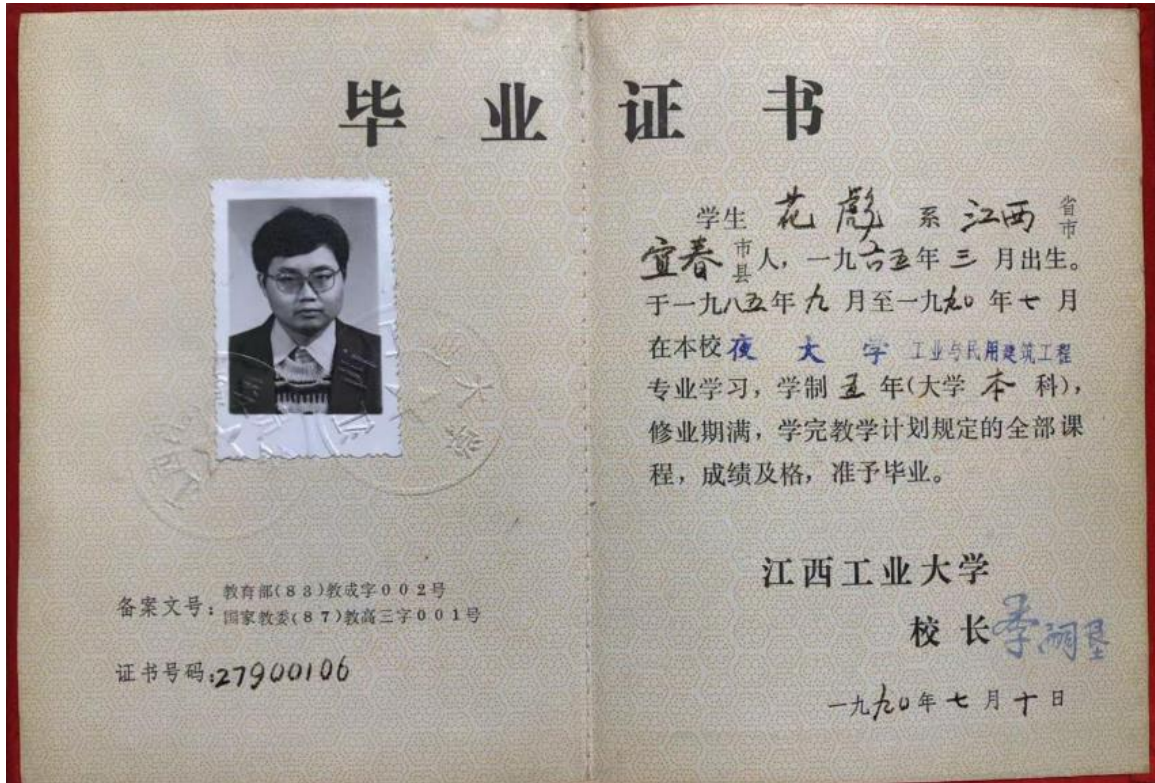 毕业证书
学生 花彪 系 江西 省市
宜春 市县人，一九六五年三月出生。
于一九八五年九月至一九九0年七月
在本校夜大学 工业与民用建筑工程
专业学习，学制五年(大学本科)，
修业期满，学完教学计划规定的全部课
程，成绩及格，准予毕业。
江西工业大学
校长 李嗣垦
一九九0年七月十日
备案文号：教育部(83)教成字002号
国家教委(87)教高三字001号
证书号码:27900106